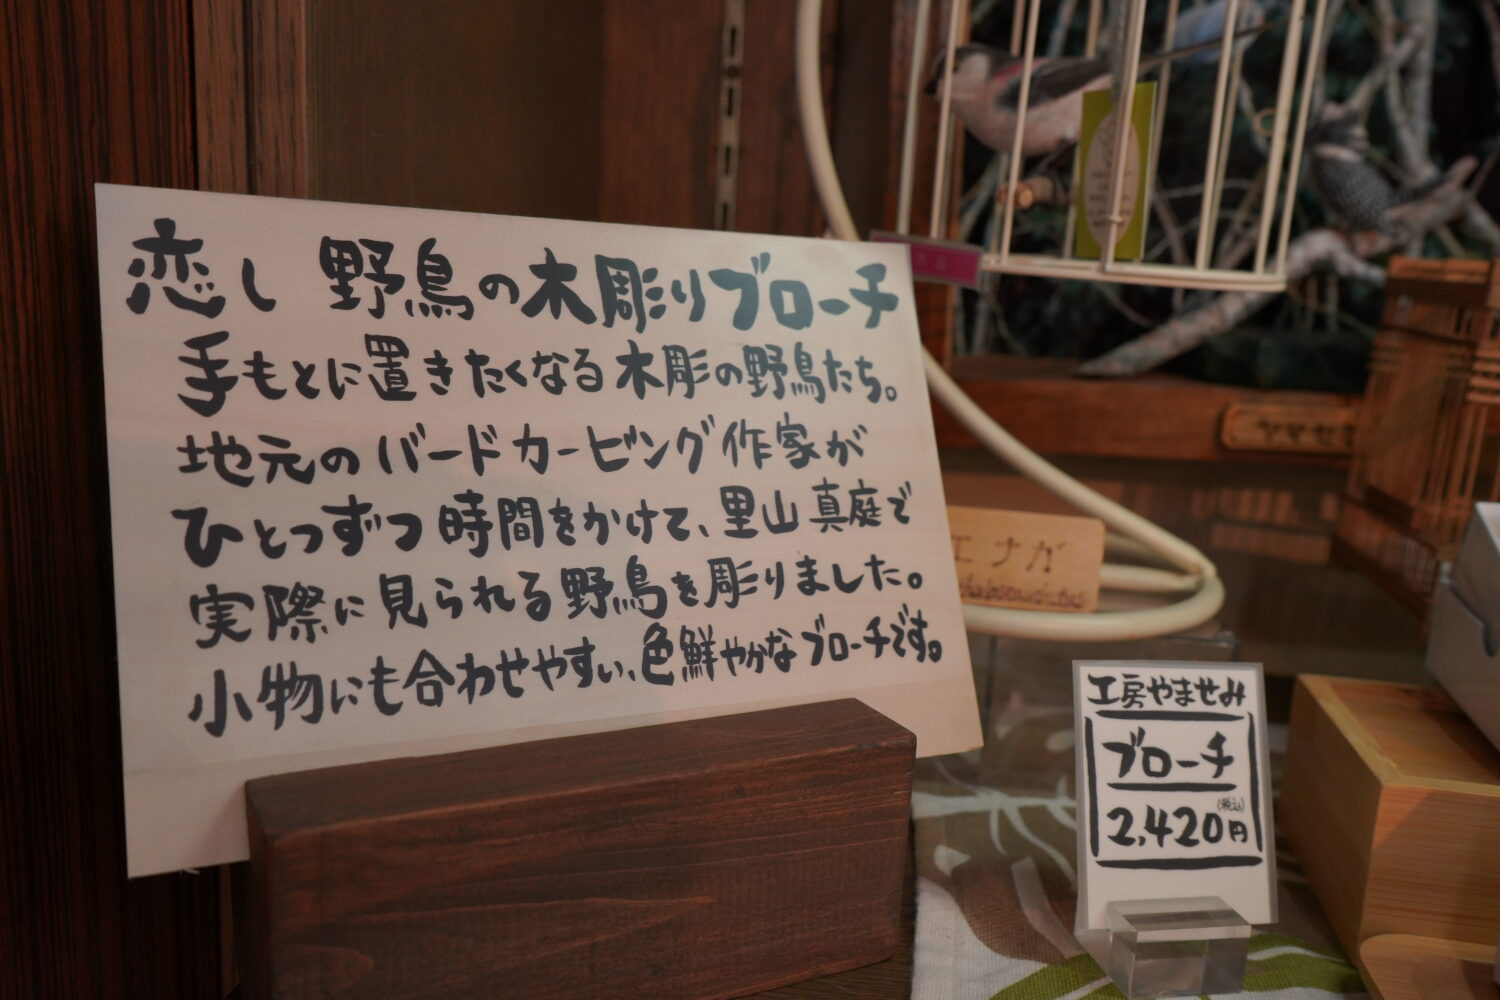 恋し 野鳥の木彫りブローチ
手もとに置きたくなる木彫の野鳥たち。
地元のバードカービング作家が
ひとつずつ時間をかけて、里山真庭で
実際に見られる野鳥を彫りました。
小物にも合わせやすい、色鮮やかなブローチです。
エナガ
工房やませみ
ブローチ
(税込)
2,420円